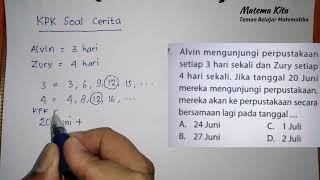 Matema Kita
Teman Belajar Matematika
KPK Soal Cerita
Alvin = 3 hari
Zury = 4 hari
3 = 3, 6, 9, 12, 15, ...
4 = 4, 8, 12, 16, ...
KPK
20 Juni +
Alvin mengunjungi perpustakaan
setiap 3 hari sekali dan Zury setiap
4 hari sekali. Jika tanggal 20 Juni
mereka mengunjungi perpustakaan,
mereka akan ke perpustakaan secara
bersamaan lagi pada tanggal ....
A. 24 Juni C. 1 Juli
B. 27 Juni D. 2 Juli